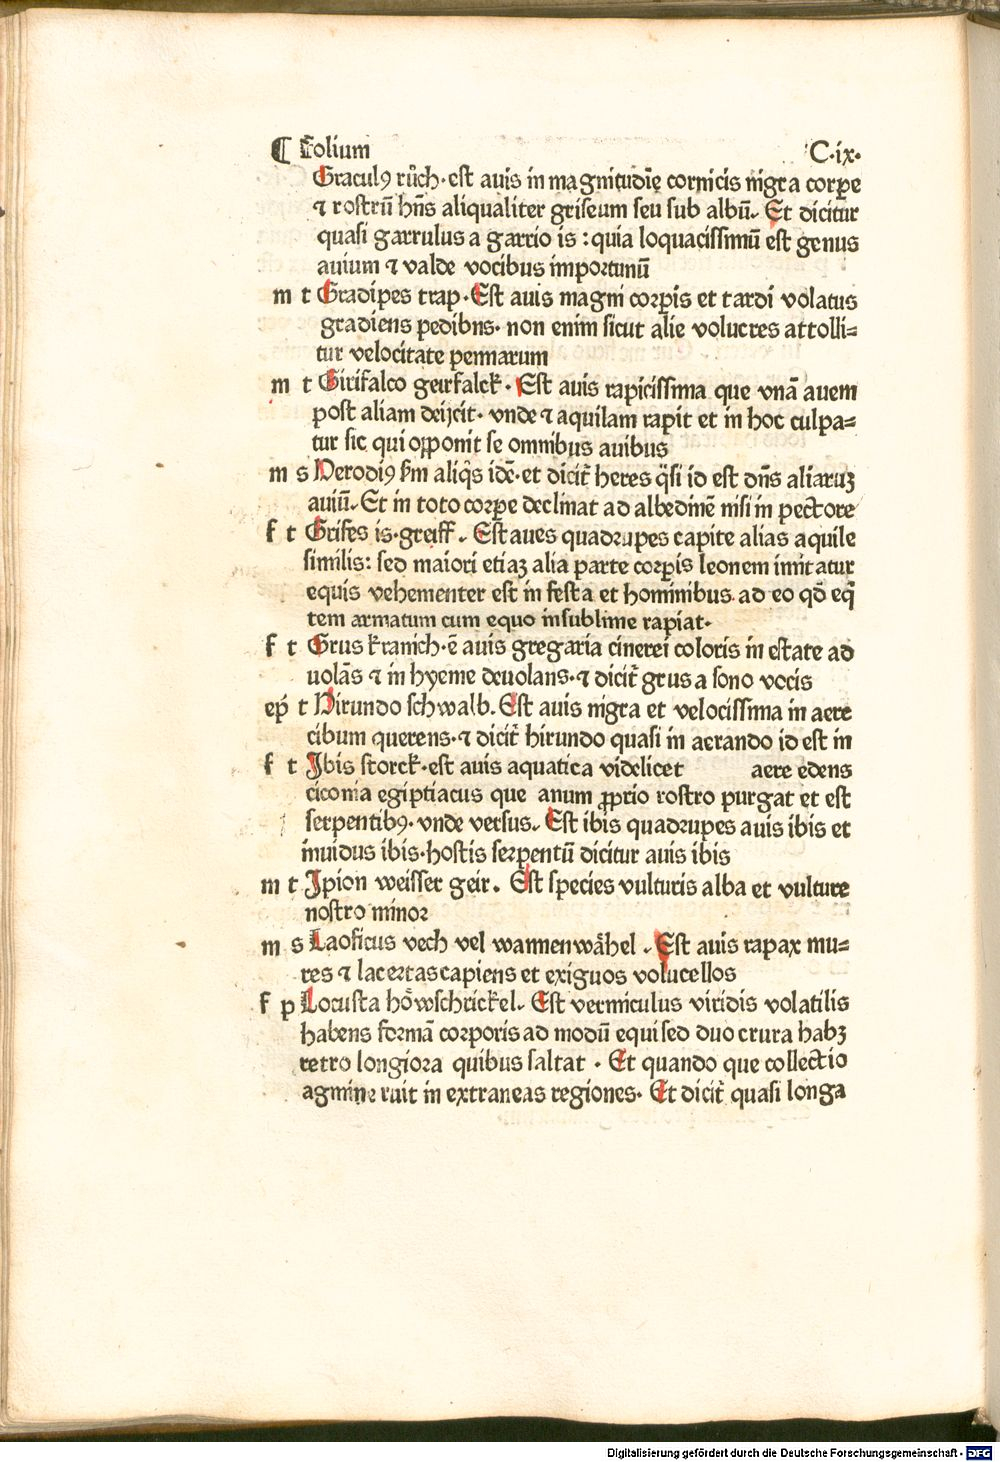 ¶ Folium C·ix·
Graculꝯ růch·est auis in magnitudīe cornicis nigra corꝑe
⁊ rostrū hn̄s aliqualiter griseum seu sub albū. Et dicitur
quasi garrulus a garrio is : quia loquacissimū est genus
auium ⁊ valde vocibus importunū
m t Gradipes trap·Est auis magni corꝑis et tardi volatus
gradiens pedibns· non enim sicut alie volucres attolli⸗
tur velocitate pennarum
m t Girifalco geirfalck· Est auis rapicissima que vnā auem
post aliam deijcit· vnde ⁊ aquilam rapit et in hoc culpa⸗
tur sic qui opponit se omnibus auibus
m s Herodiꝯ ẜm aliq̇s idē·et dicit̄ heres q̄si id est dn̄s aliaruꝫ
auiū. Et in toto corꝑe declinat ad albedinē nisi in pectore
f t Grifes is·greiff. Est aues quadrupes capite alias aquile
similis: sed maiori etiaꝫ alia parte corꝑis leonem imitatur
equis vehementer est infesta et hominibus ad eo qd̄ eq̄
tem armatum cum equo insublime rapiat·
f t Grus kranich·ē auis gregaria cinerei coloris in estate ad
uolās ⁊ in hyeme deuolans·⁊ dicit̄ grus a sono vocis
ep̄ t Hirundo schwalb. Est auis nigra et velocissima in aere
cibum querens·⁊ dicit̄ hirundo quasi in aerando id est in
f t Jbis storck·est auis aquatica videlicet aere edens
ciconia egiptiacus que anum ꝓprio rostro purgat et est
serpentibꝯ·vnde versus. Est ibis quadrupes auis ibis et
inuidus ibis·hostis serpentū dicitur auis ibis
m t Jpion weisser geir. Est species vulturis alba et vulture
nostro minor
m s Laoficus vech vel wannenwåhel . Est auis rapax mu⸗
res ⁊ lacertas capiens et exiguos volucellos
f p Locusta hǒwschrickel. Est vermiculus viridis volatilis
habens formā corporis ad modū equi sed duo crura habꝫ
retro longiora quibus saltat . Et quando que collectio
agmine ruit in extraneas regiones· Et dicit̄ quasi longa
Digitalisierung gefördert durch die Deutsche Forschungsgemeinschaft - DFG